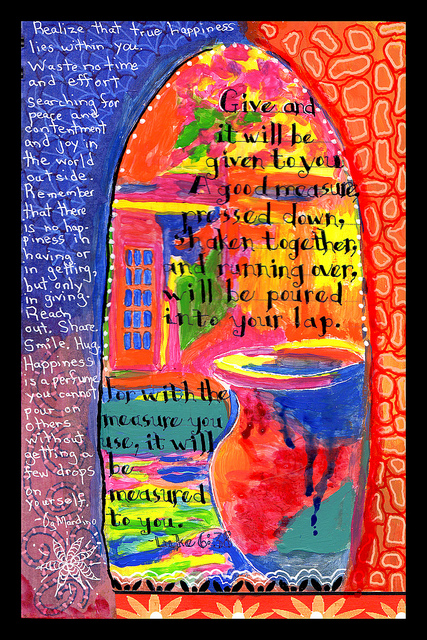 Realize that true happiness
lies within you.
Waste no time
and effort
searching for
peace and
contentment
and joy in
the world
outside.
Remember
that there
is no hap-
piness in
having or
in getting,
but only
in giving.
Reach
out. Share.
Smile. Hug.
Happiness
is a perfume
you cannot
pour on
others
without
getting a
few drops
on
yourself.
-Og Mandino
Give and
it will be
given to you.
A good measure,
pressed down,
shaken together,
and running over,
will be poured
into your lap.
For with the
measure you
use, it will
be
measured
to you.
Luke 6:38